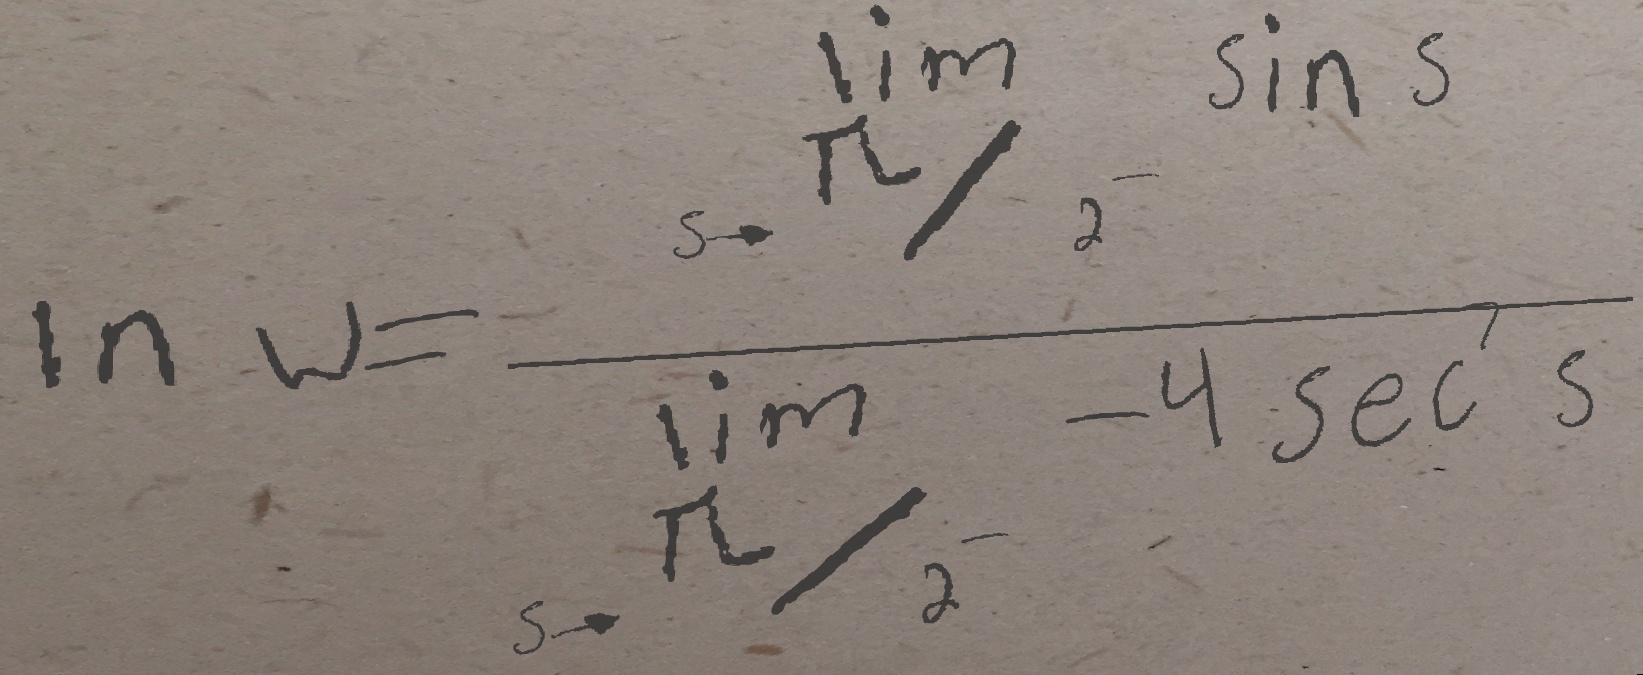 \ln w = \frac{\lim_{s \to \pi/2^-} \sin s}{\lim_{s \to \pi/2^-} -4 \sec' s}